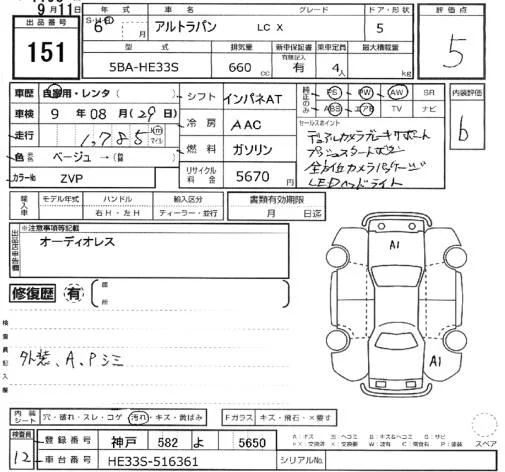 9月11日
出品番号
151
年式
6 年 月
車名
アルトラパン
グレード
LC X
ドア・形状
5
評価点
5
型式
5BA-HE33S
排気量
660 cc
新車保証書
有無記入
有
乗車定員
4人
最大積載量
kg
車歴 自家用・レンタ (
車検 9 年 08 月 (29日)
走行 1,785 km マイル
色 ベージュ → (替
カラーNo ZVP
シフト インパネAT
冷房 AAC
燃料 ガソリン
リサイクル料金 5670 円
純正のみ
PS PW AW SR
ABS エアB TV ナビ
内装評価
b
セールスポイント
デュアルカメラブレーキサポート
プッシュスタートボタン
全方位カメラパッケージ
LEDヘッドライト
輸入車
モデル年式
ハンドル
右H・左H
輸入区分
ディーラー・並行
書類有効期限
月 日迄
※注意事項等記載
オーディオレス
修復歴 有
箇所
検査員記入欄
外装、A、Pシミ
A1
A1
内装シート
穴・破れ・スレ・コゲ 汚れ・キズ・黄ばみ
Fガラス キズ・飛石・×要す
スペア
検査員
12
登録番号 神戸 582 よ 5650
車台番号 HE33S-516361
シリアルNo.